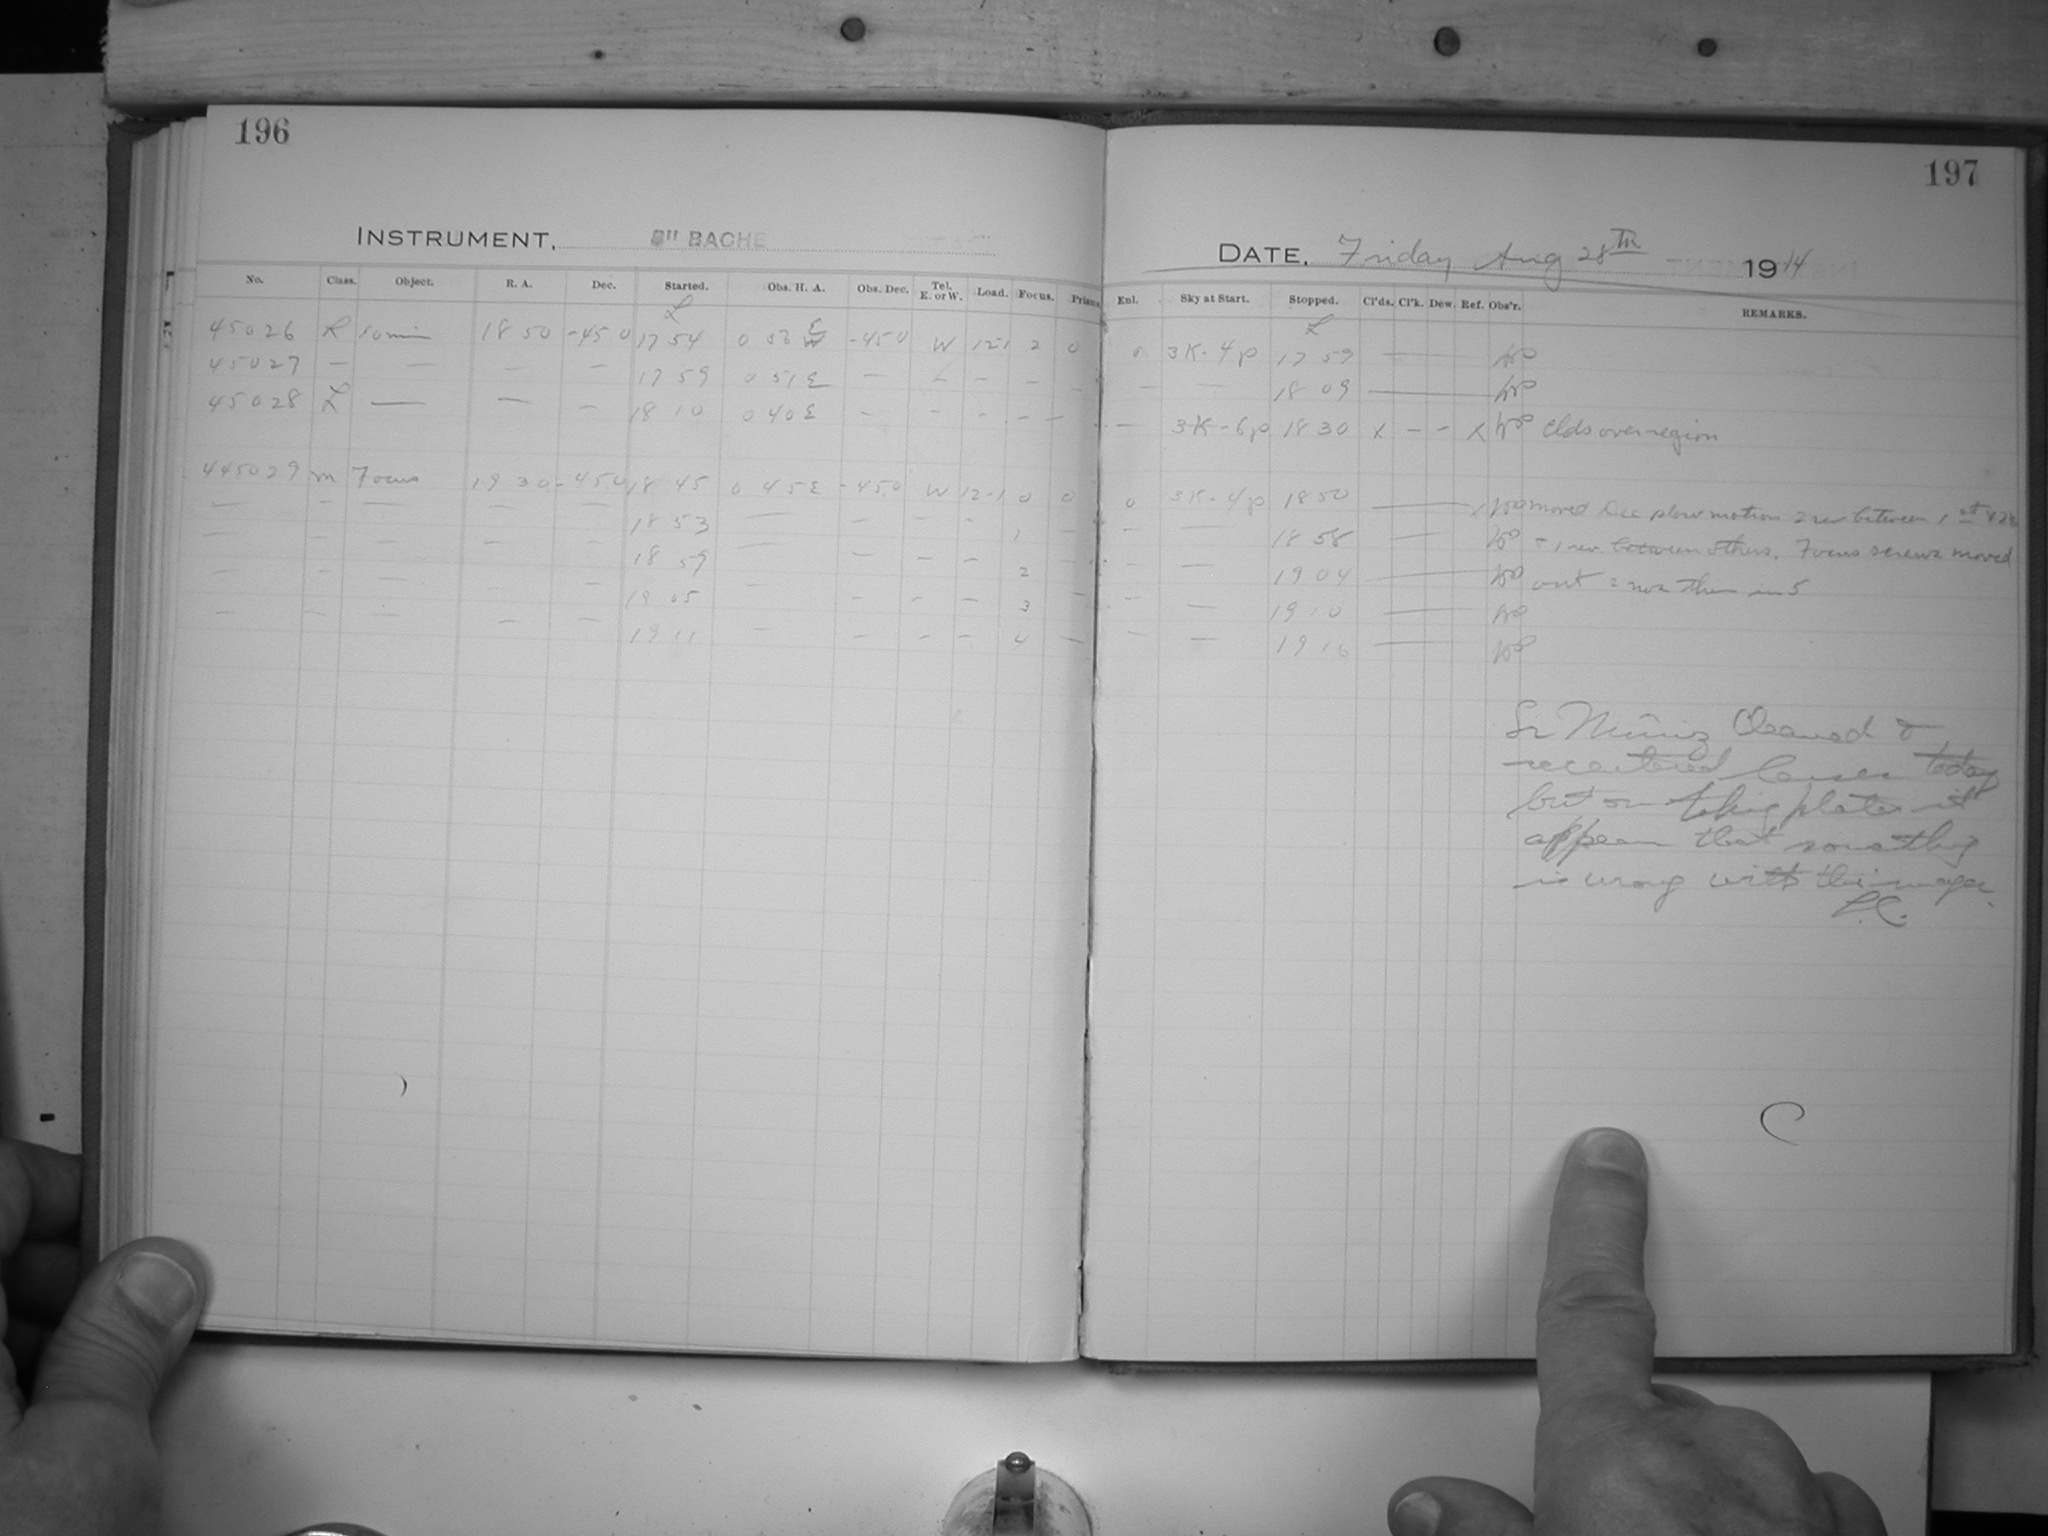 196
197
INSTRUMENT, 8" BACHE
DATE, Friday Aug 28th 1914
No. Class. Object. R. A. Dec. Started. Obs. H. A. Obs. Dec. Tel. E. or W. Load. Focus. Prism.
Enl. Sky at Start. Stopped. Cl'ds. Cl'k. Dew. Ref. Obs'r. REMARKS.
L L
45026 L 10 min 18 50 -45 0 17 54 0 56 E -45 0 W 12-1 2 0 0 3K-4p 17 59 —
45027 — — — — 17 59 0 51 E — — — — — — — 18 09 —
45028 L — — — 18 10 0 40 E — — — — — — 3K-6p 18 30 X — — X Clds over region
445029 m Focus 19 30 -45.0 18 45 0 45 E -45.0 W 12-1 0 0 0 3K-4p 18 50 — moved Dec slow motion 2 rev between 1st &
— — — — — 18 53 — — — — 1 — — — 18 58 — & 1 rev between others. Focus screws moved
— — — — — 18 59 — — — — 2 — — — 19 04 — out 2 then in 5
— — — — — 19 05 — — — — 3 — — — 19 10 —
— — — — — 19 11 — — — — 4 — — — 19 16 —
Sr Muñiz Cleaned &
recentered lenses today
but on taking plates it
appears that something
is wrong with the images.
L.C.